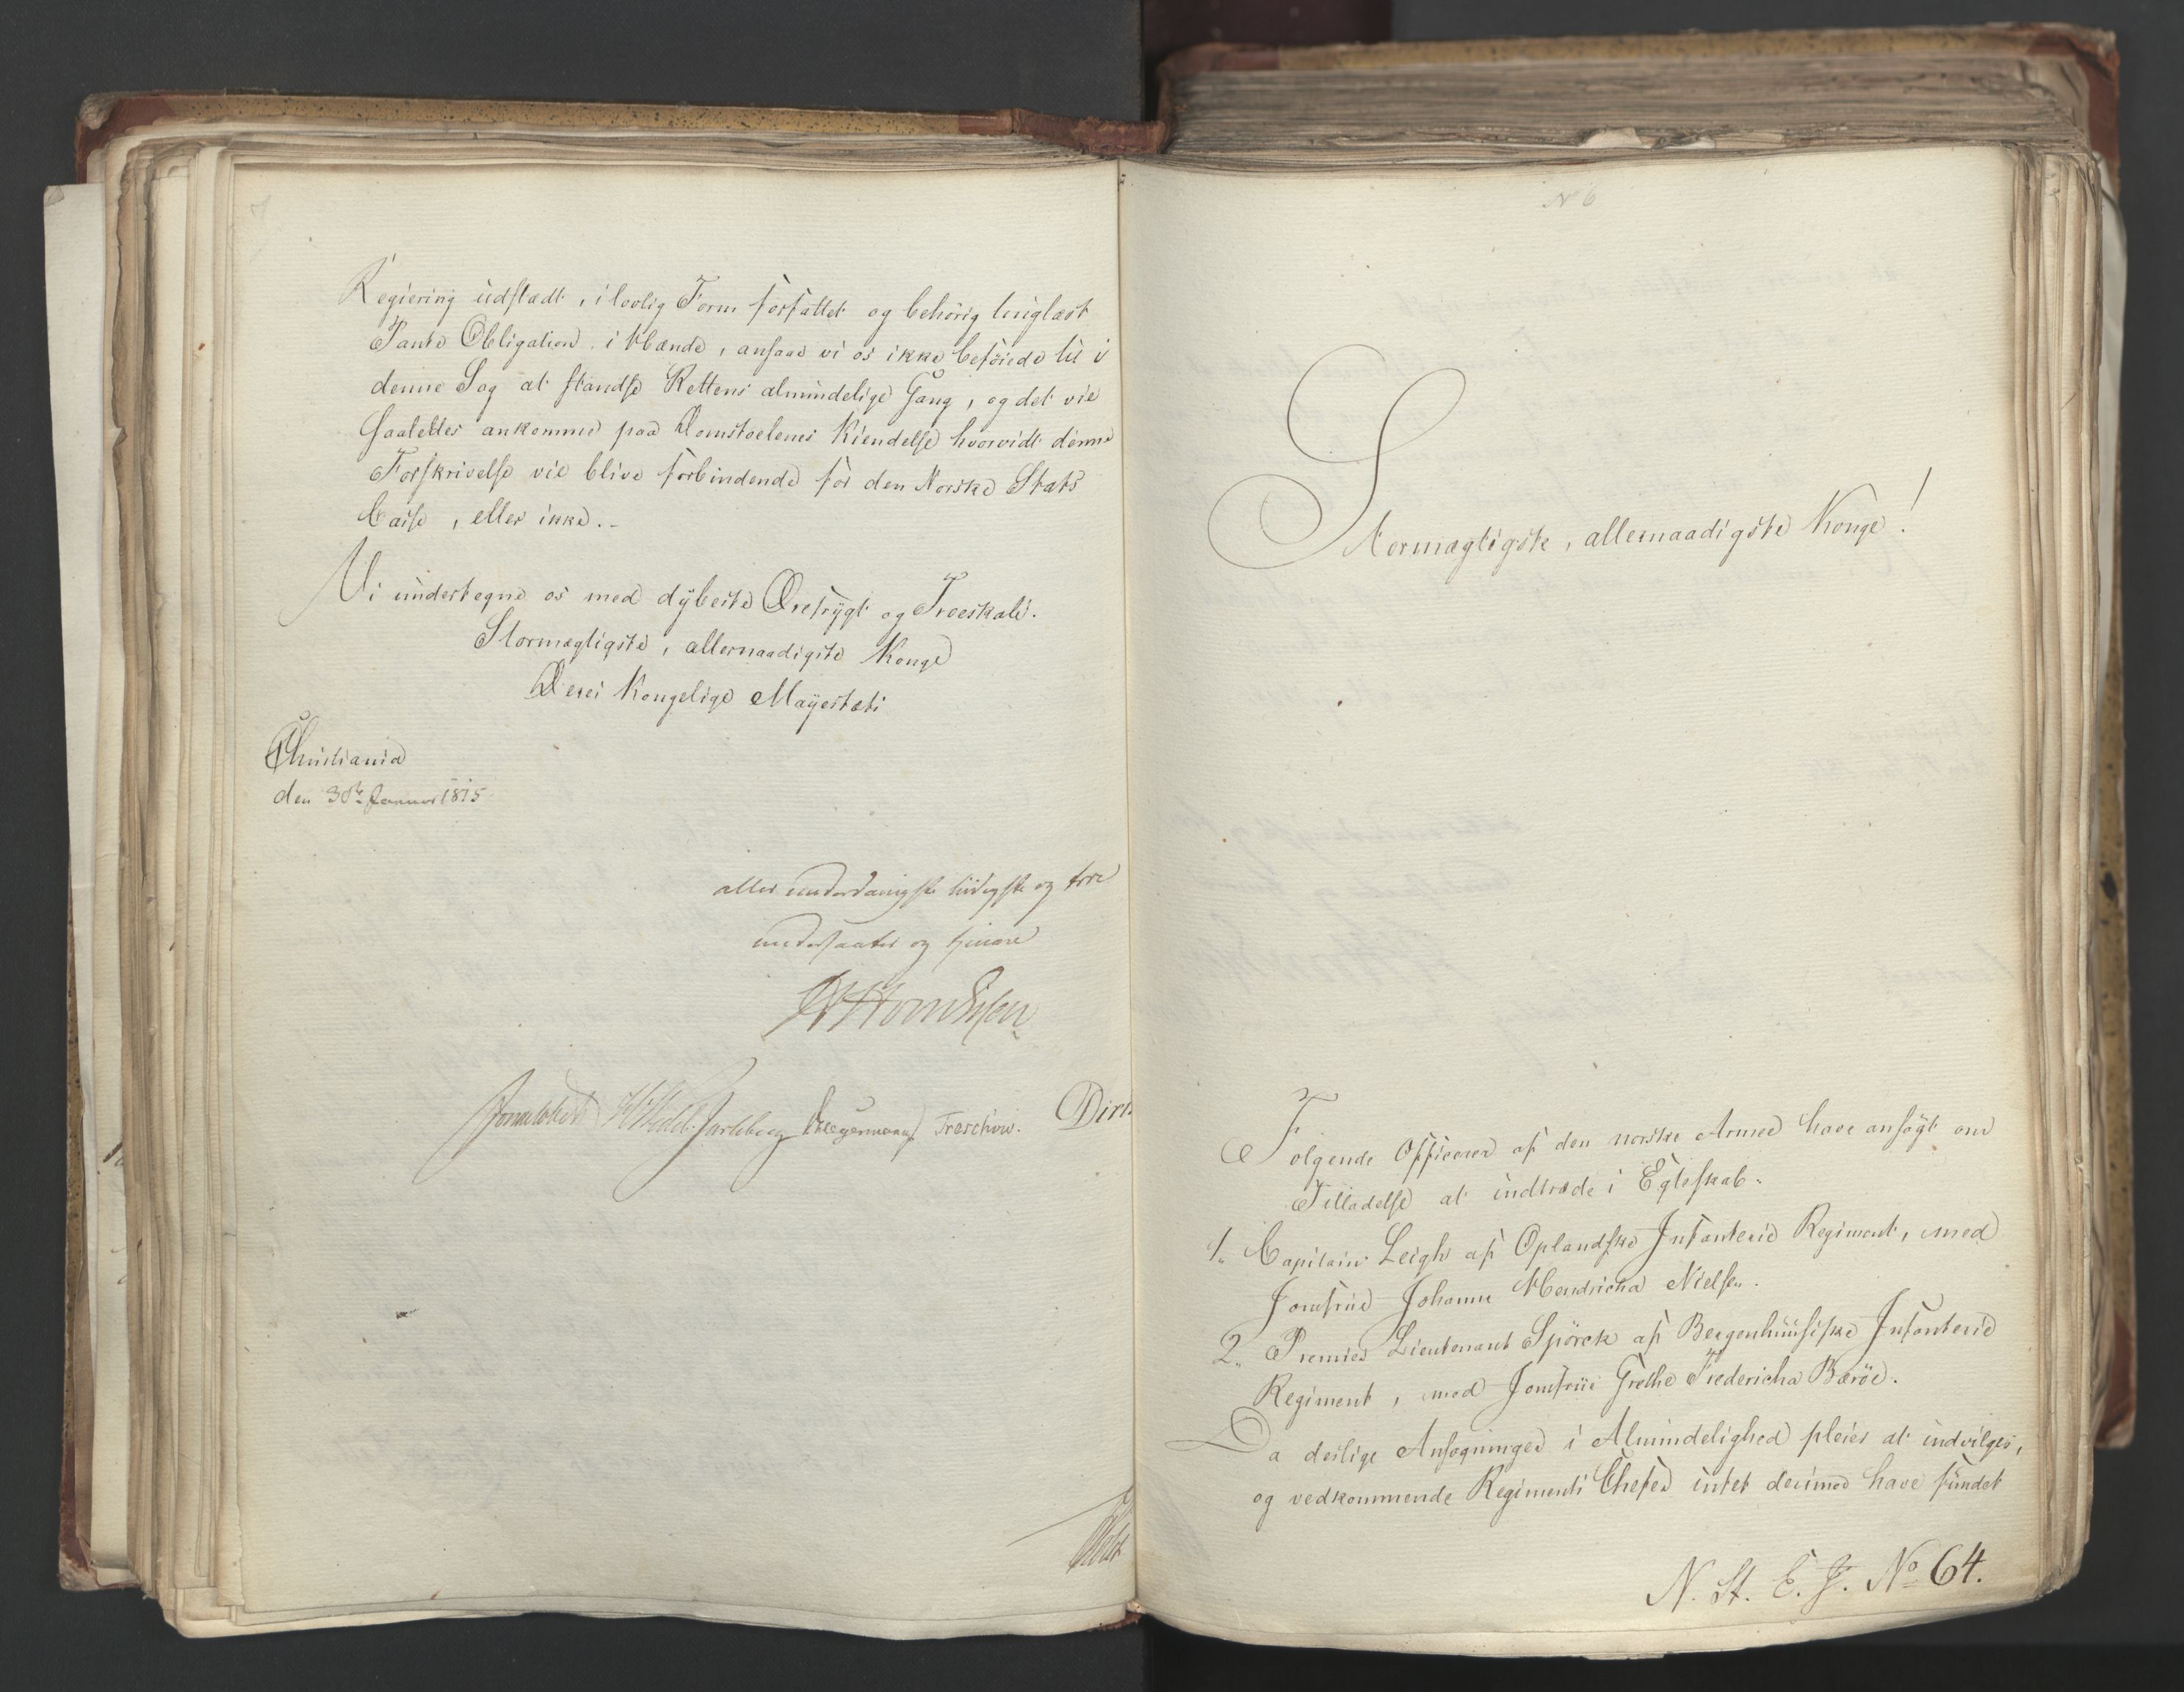 Regiering udstædt, i lovlig Form forfattet og behörig tinglæst
Pante Obligation i Hænde, ansaae vi os ikke beföiede til i
denne Sag at standse Rettens almindelige Gang, og det vil
saaledes ankomme paa Domstolenes Kiendelse hvorvidt denne
Forskrivelse vil blive forbindende for den Norske Stats
Casse, eller ikke.
Vi undertegne os med dÿbeste Ærefrÿgt og Troeskab.
Stormægtigste, allernaadigste Konge
Deres Kongelige Maÿestæts
Christiania
den 30te Januar 1815
aller underdanigste lÿdigste og troe
undersaatter og tjenere
Sommelsted H Wedel Jarlsberg Hegermann Treschow.
Holst
N 6
Stormægtigste, allernaadigste Konge!
Fölgende Officerer af den norske Armee have ansögt om
Tilladelse at indtræde i Egteskab.
1. Capitain Leigh af Oplandske Infanterie Regiment, med
Jomfrue Johanne Hendricha Nielsen.
2. Premier Lieutenant Spörck af Bergenhuusiske Infanterie
Regiment, med Jomfrue Grethe Fredericha Baröe.
Da deslige Ansögninger i Almindelighed pleier at indvilges,
og vedkommende Regiments Chefer intet derimod have fundet
N. St. E. J. No 64.